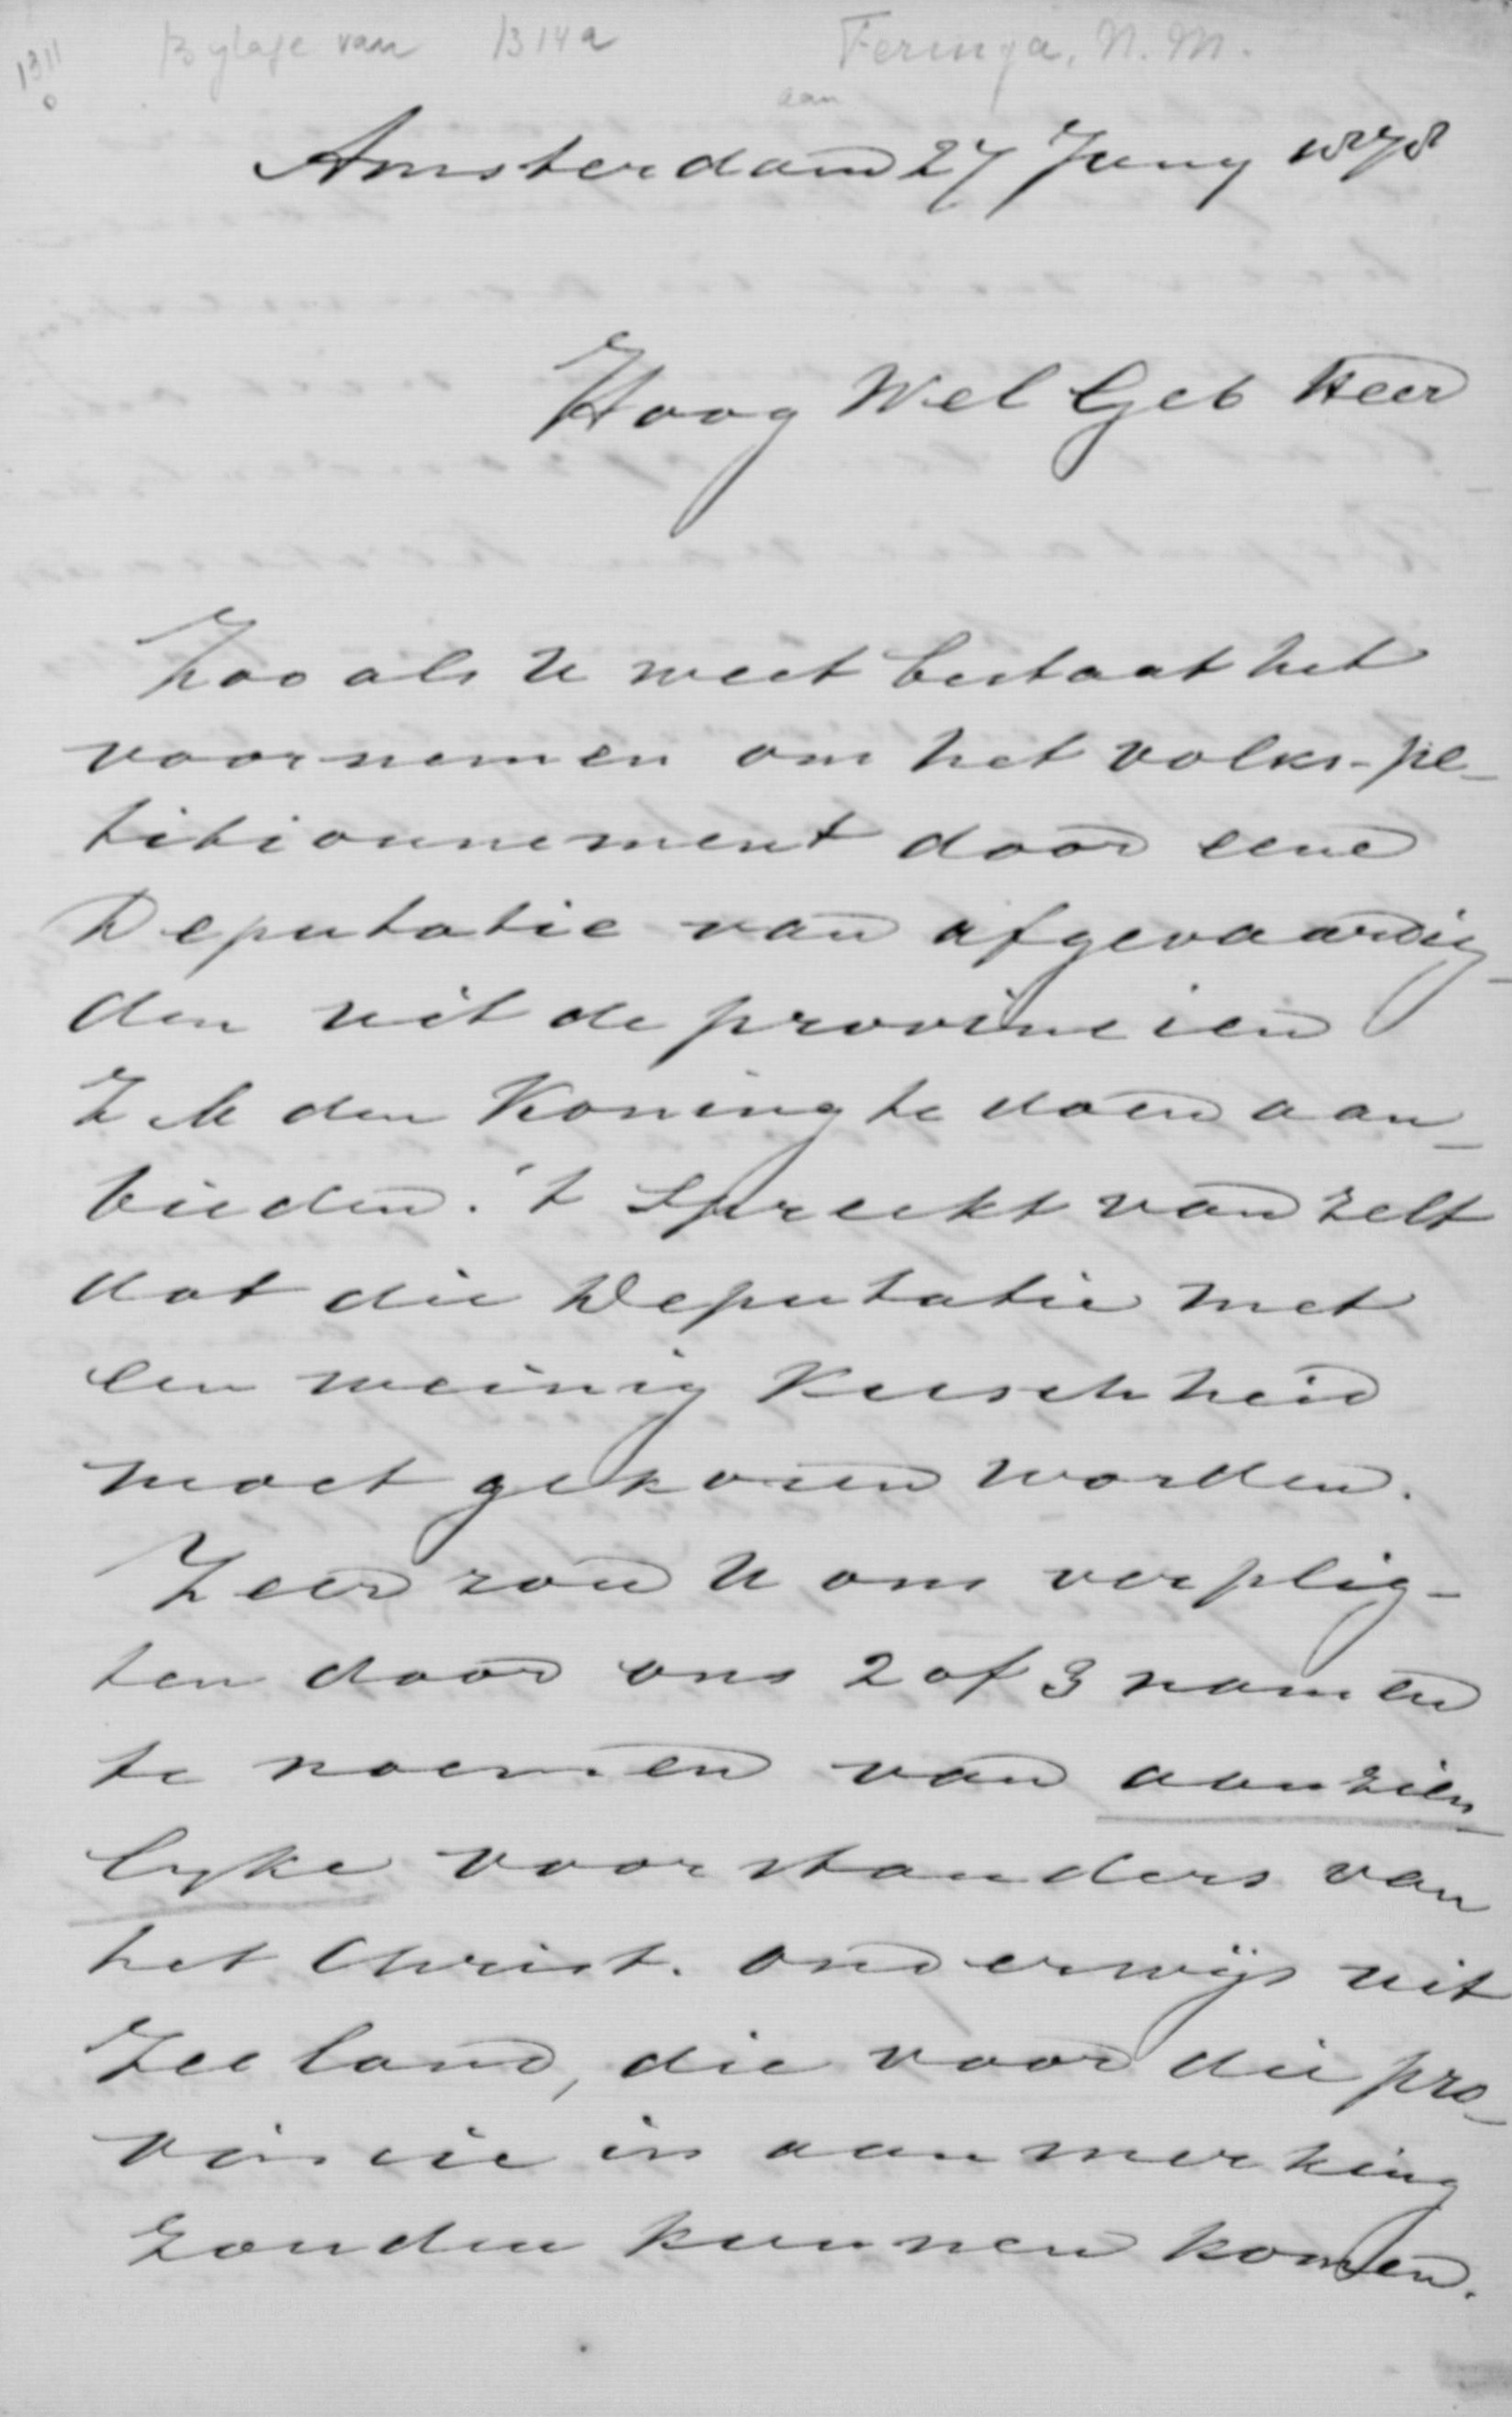 Bylage van 1314a Feringa, N. M.
1311
aan
Amsterdam 27 Juny 1878
Hoog Wel Geb Heer
Zooals U weet bestaat het
voornemen om het volks-pe-
titionnement door eene
Deputatie van afgevaardig-
den uit de provincien
Z M den Koning te doen aan-
bieden. 't Spreekt van zelf
dat die Deputatie met
een weinig Keuschheid
moet gekozen worden.
Zeer zou U ons verplig-
ten door ons 2 of 3 namen
te noemen van aanzien-
lyke voorstanders van
het Christ. onderwijs uit
Zeeland, die voor die pro-
vincie in aanmerking
zouden kunnen komen.